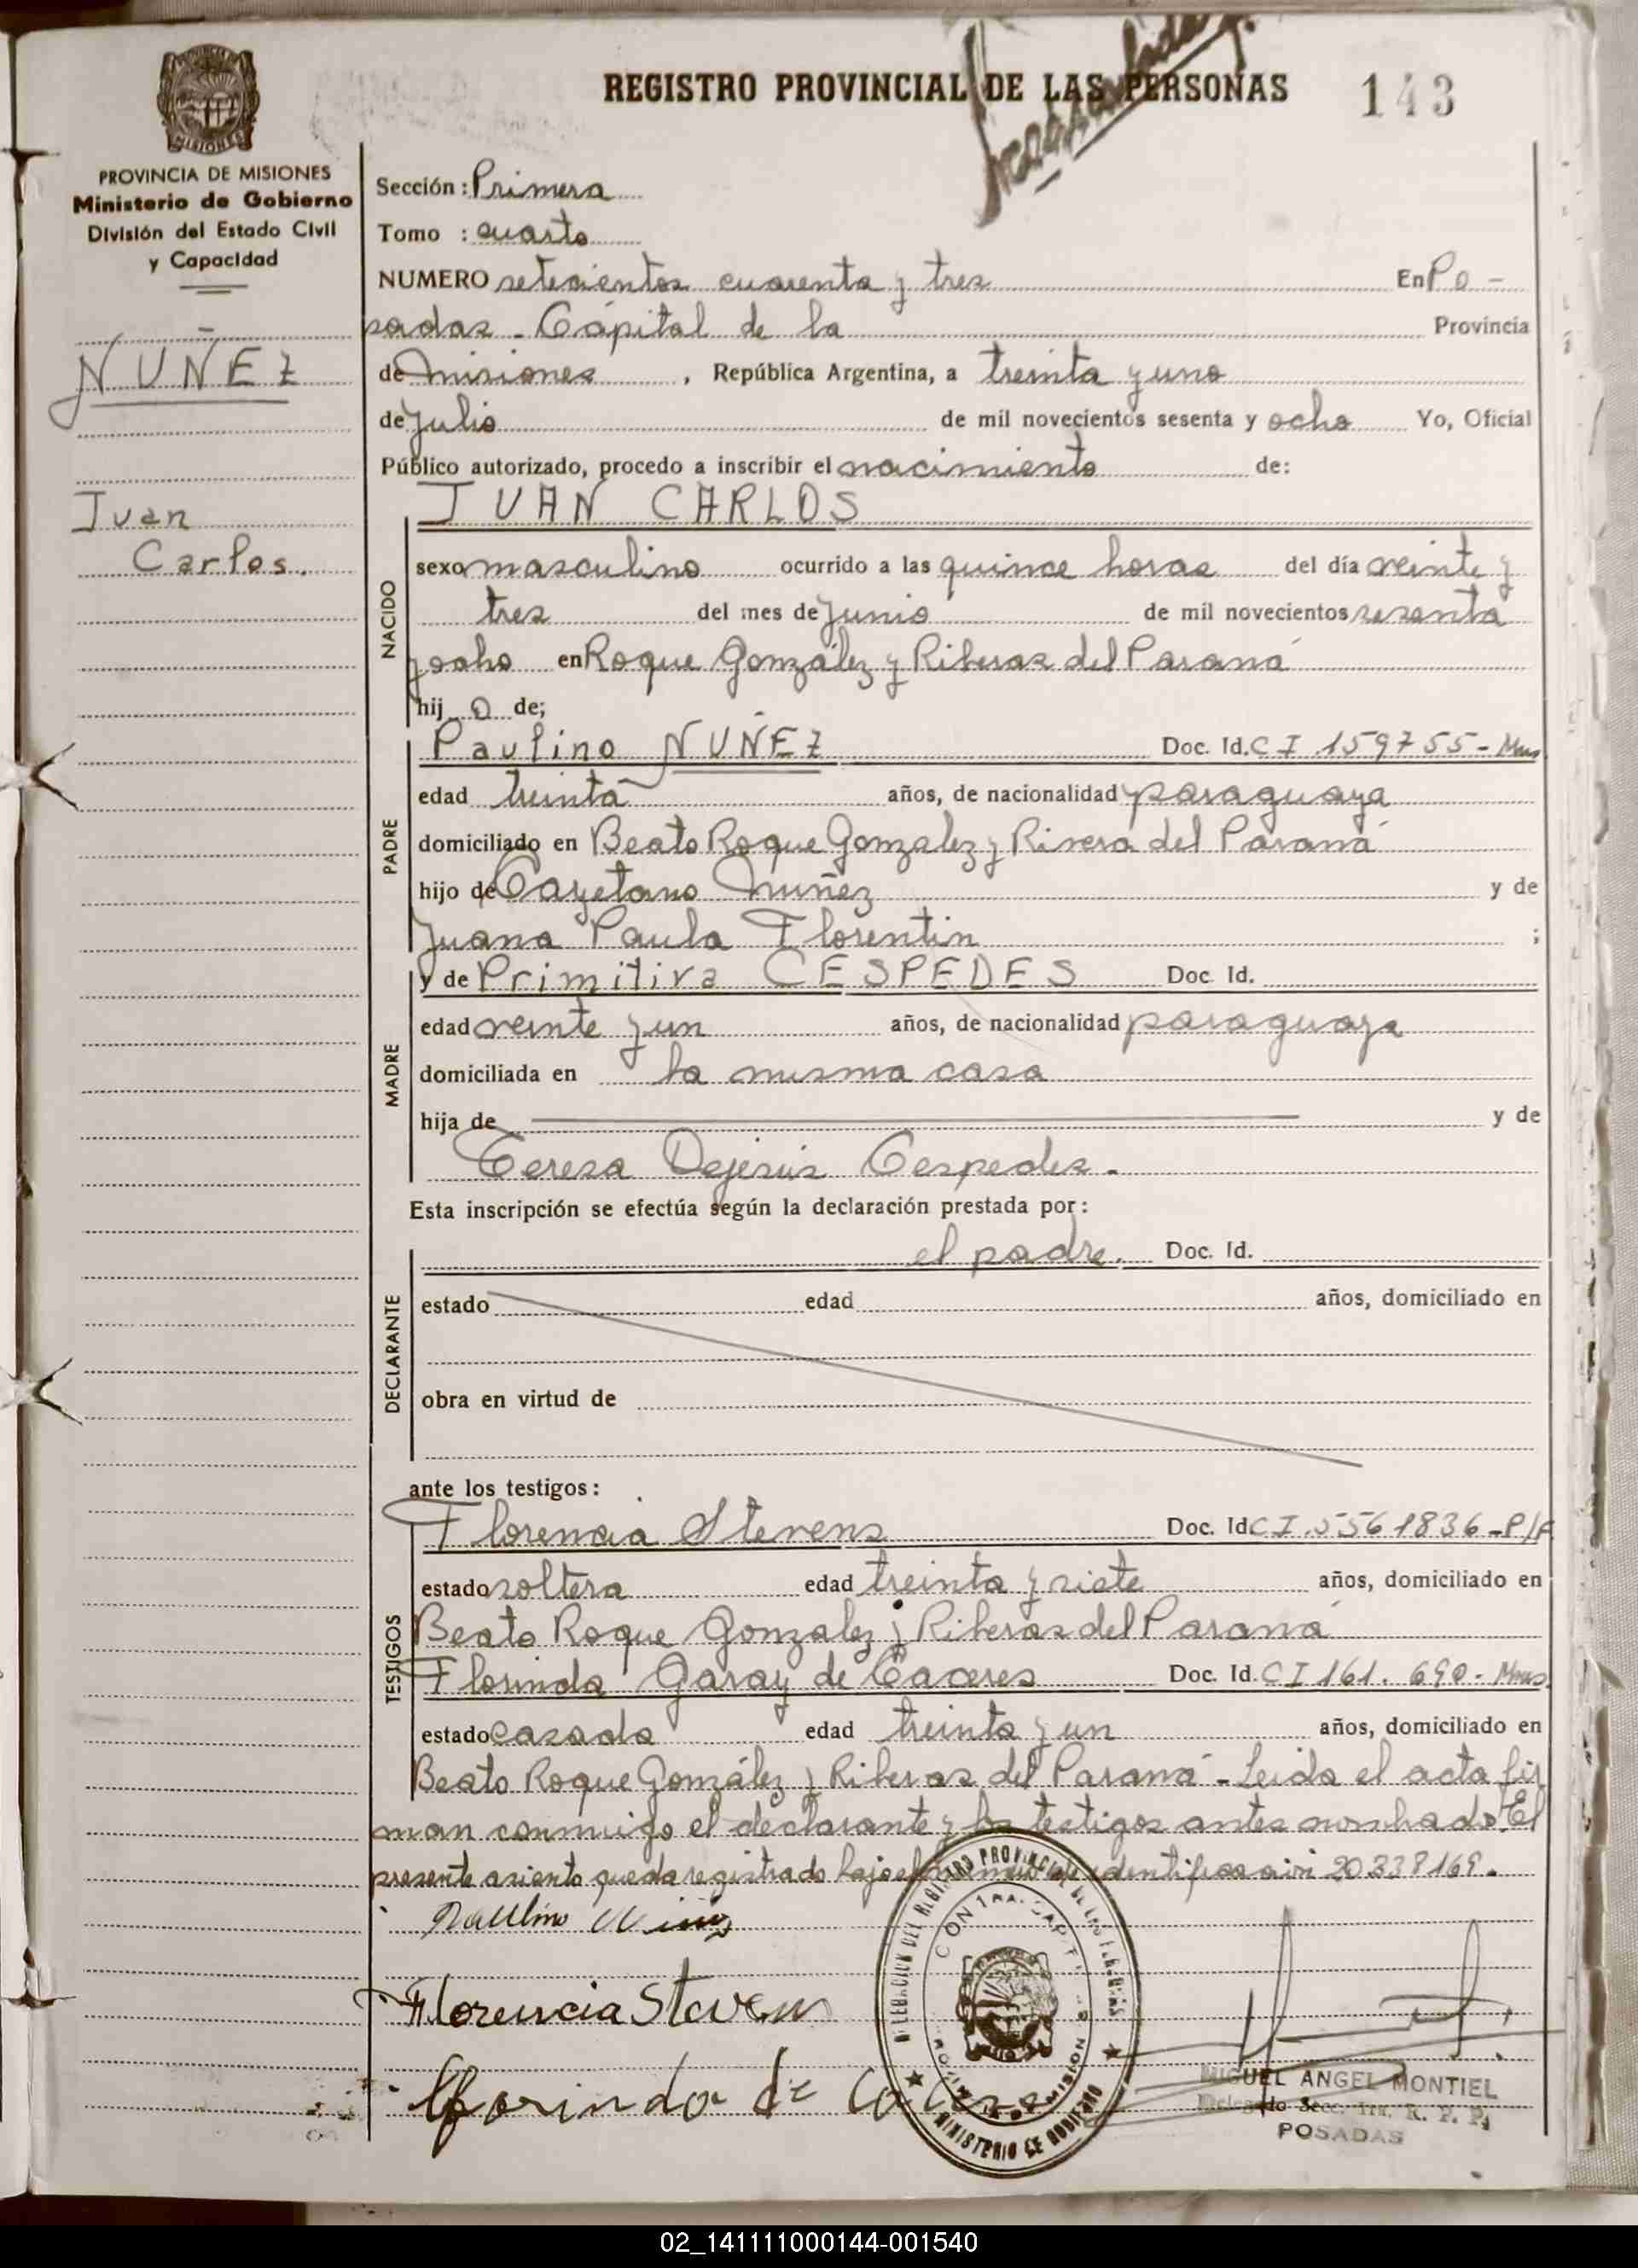 REGISTRO PROVINCIAL DE LAS PERSONAS 143
PROVINCIA DE MISIONES
Ministerio de Gobierno
División del Estado Civil
y Capacidad
NUÑEZ
Juan
Carlos.
Sección: Primera
Tomo : cuarto
NUMERO setecientos cuarenta y tres En Po-
sadas - Capital de la Provincia
de misiones, República Argentina, a treinta y uno
de Julio de mil novecientos sesenta y ocho Yo, Oficial
Público autorizado, procedo a inscribir el nacimiento de:
JUAN CARLOS
NACIDO
sexo masculino ocurrido a las quince horas del día veinte y
tres del mes de Junio de mil novecientos sesenta
y ocho en Roque González y Riberas del Paraná
hij o de;
PADRE
Paulino NUÑEZ Doc. Id. CI 159755- Mnes
edad treinta años, de nacionalidad paraguaya
domiciliado en Beato Roque Gonzalez y Rivera del Paraná
hijo de Cayetano Nuñez y de
Juana Paula Florentin ;
MADRE
y de Primitiva CESPEDES Doc. Id.
edad veinte y un años, de nacionalidad paraguaya
domiciliada en la misma casa
hija de y de
Teresa Dejesús Cespedes.
Esta inscripción se efectúa según la declaración prestada por:
DECLARANTE
el padre. Doc. Id.
estado edad años, domiciliado en
obra en virtud de
ante los testigos:
TESTIGOS
Florencia Stevens Doc. Id CI 5561836-P/F
estado soltera edad treinta y siete años, domiciliado en
Beato Roque Gonzalez y Riberas del Paraná
Florinda Garay de Caceres Doc. Id. CI 161.690- Mnes.
estado casada edad treinta y un años, domiciliado en
Beato Roque González y Riberas del Paraná - Leida el acta fir
man conmigo el declarante y los testigos antes nombrados El
presente asiento queda registrado bajo el 20.338169.
Paulino
Florencia Stevens
Florinda de Caceres
MINISTERIO DE GOBIERNO
MIGUEL ANGEL MONTIEL
R. P. P.
POSADAS
02_141111000144-001540